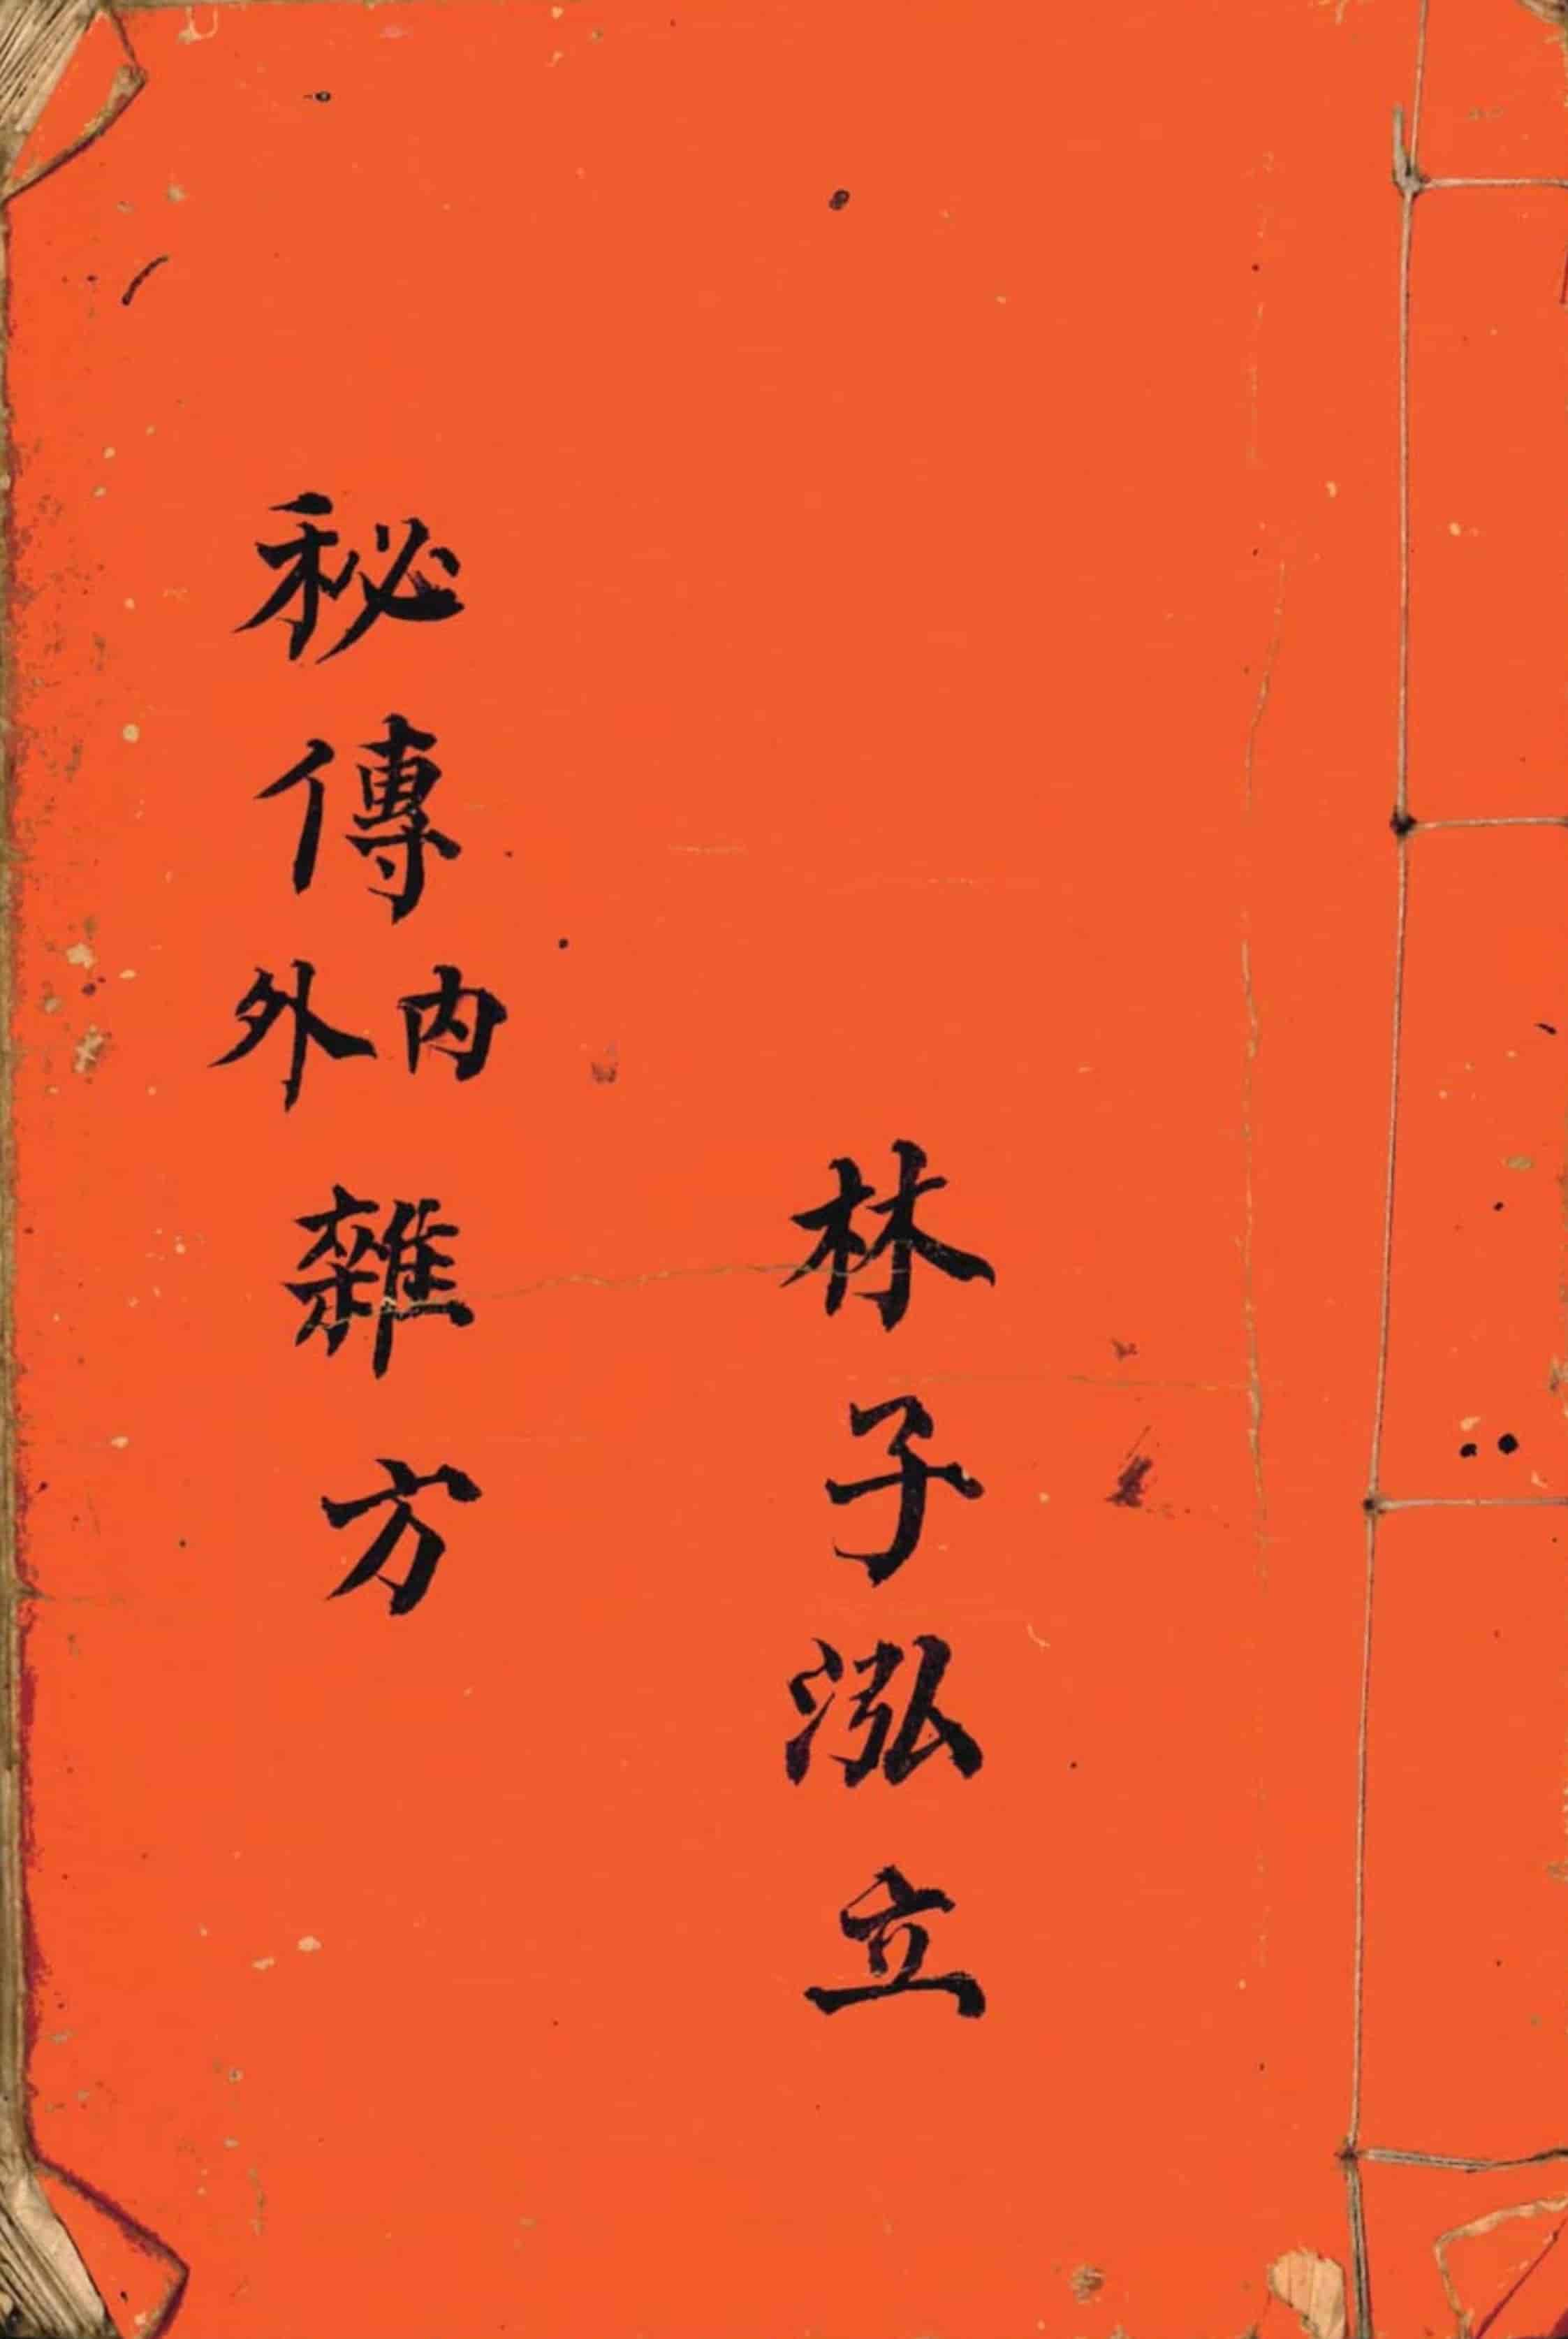 林子泓立
秘傳內外雜方